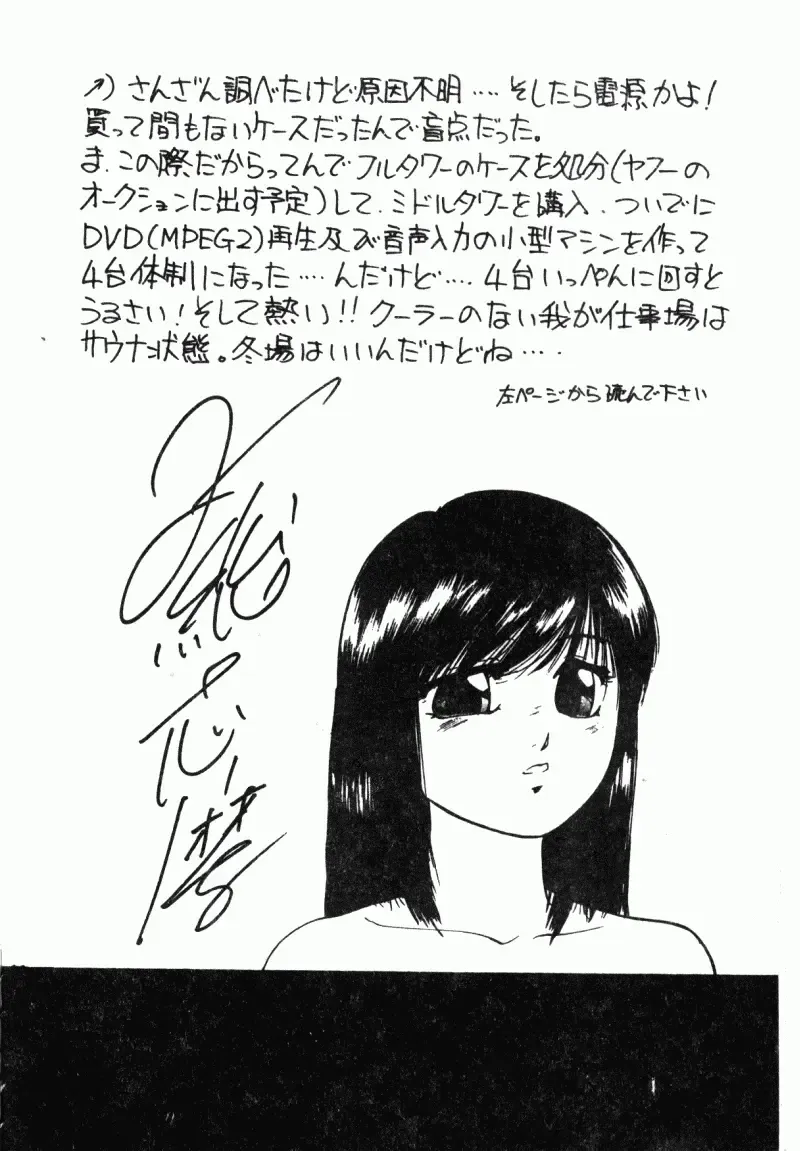 ↗) さんざん調べたけど原因不明‥‥そしたら電源かよ!
買って間もないケースだったんで盲点だった。
ま、この際だからってんでフルタワーのケースを処分(ヤフーの
オークションに出す予定)して、ミドルタワーを購入、ついでに
DVD(MPEG2)再生及び音声入力の小型マシンを作って
4台体制になった‥‥んだけど‥‥4台いっぺんに回すと
うるさい!そして熱い!!クーラーのない我が仕事場は
サウナ状態。冬場はいいんだけどね‥‥
左ページから読んで下さい